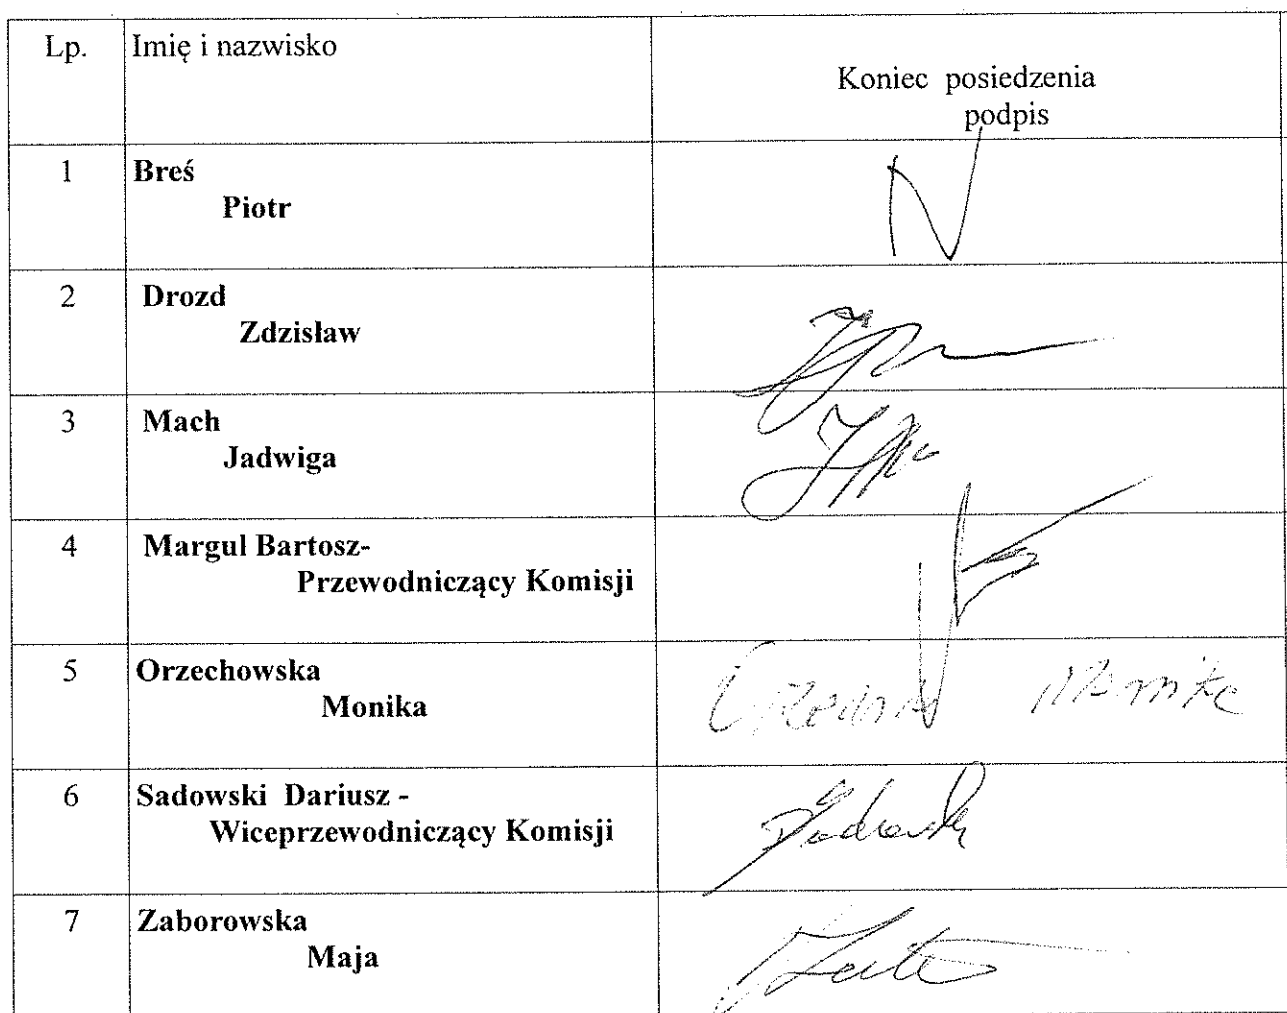 Lp.
Imię i nazwisko
Koniec posiedzenia
podpis
1
Breś
Piotr
2
Drozd
Zdzisław
3
Mach
Jadwiga
4
Margul Bartosz-
Przewodniczący Komisji
5
Orzechowska
Monika
Monika
6
Sadowski Dariusz -
Wiceprzewodniczący Komisji
7
Zaborowska
Maja